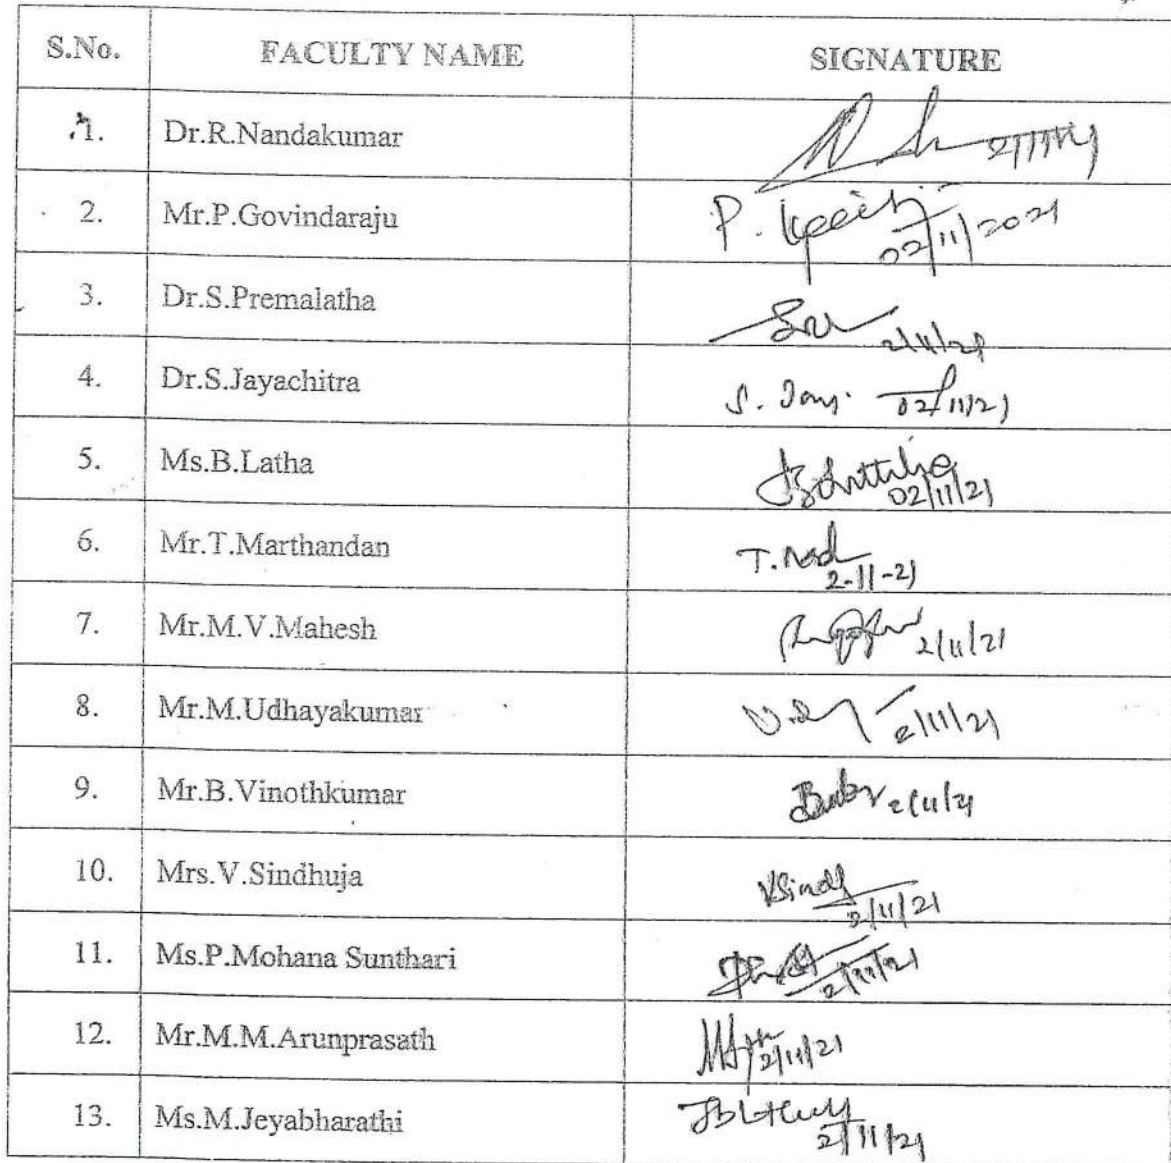 S.No. FACULTY NAME SIGNATURE
1. Dr.R.Nandakumar
2. Mr.P.Govindaraju P. 02/11/2021
3. Dr.S.Premalatha 2/11/21
4. Dr.S.Jayachitra S. Jay. 02/11/21
5. Ms.B.Latha 02/11/21
6. Mr.T.Marthandan T. 2-11-21
7. Mr.M.V.Mahesh 2/11/21
8. Mr.M.Udhayakumar 2/11/21
9. Mr.B.Vinothkumar 2/11/21
10. Mrs.V.Sindhuja VSindh 2/11/21
11. Ms.P.Mohana Sunthari 2/11/21
12. Mr.M.M.Arunprasath 2/11/21
13. Ms.M.Jeyabharathi 2/11/21